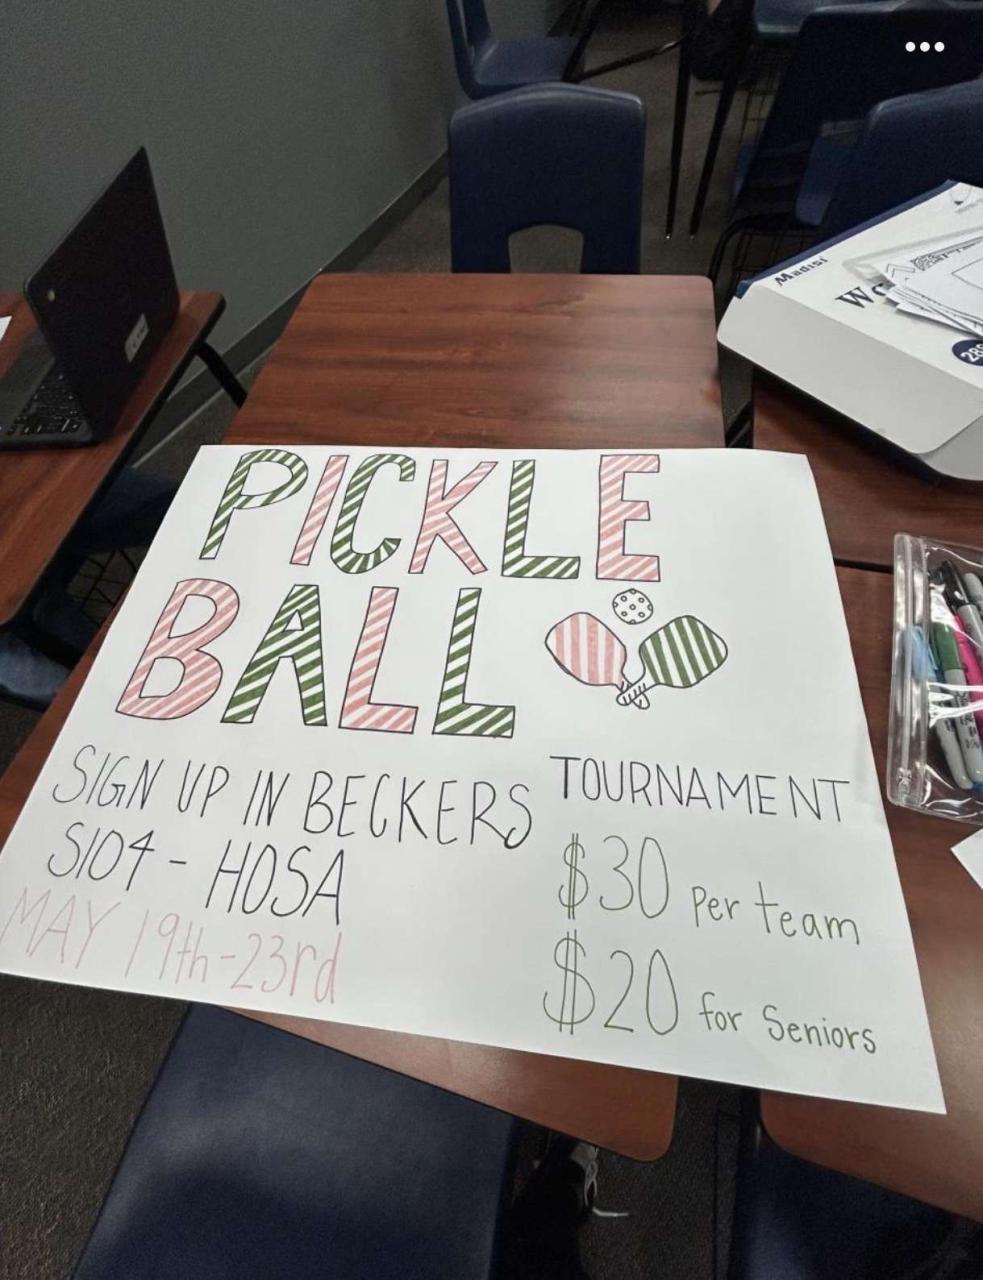 PICKLE
BALL
SIGN UP IN BECKERS
S104 - HOSA
MAY 19th-23rd
TOURNAMENT
$30 per team
$20 for Seniors
Madisi